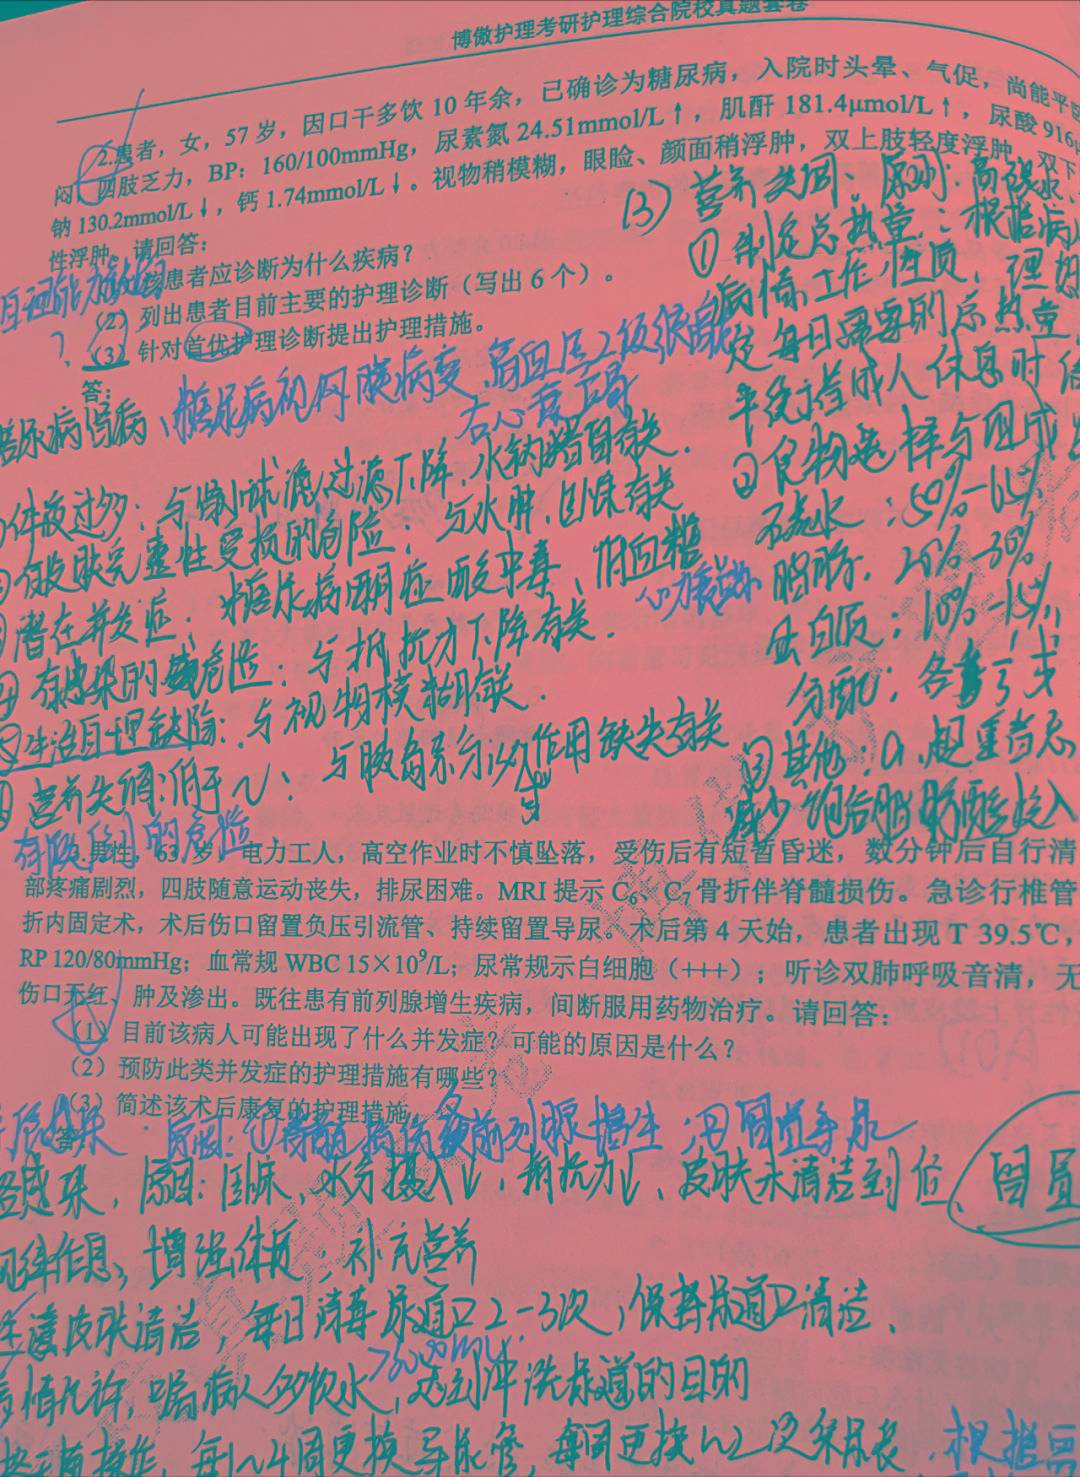 博傲护理考研护理综合院校真题套卷
2.患者，女，57 岁，因口干多饮 10 年余，已确诊为糖尿病，入院时头晕、气促，尚能平
闷，四肢乏力，BP：160/100mmHg，尿素氮 24.51mmol/L↑，肌酐 181.4μmol/L↑，尿酸 916
钠 130.2mmol/L↓，钙 1.74mmol/L↓。视物稍模糊，眼睑、颜面稍浮肿，双上肢轻度浮肿，双下
性浮肿。请回答：
患者应诊断为什么疾病？
（2）列出患者目前主要的护理诊断（写出 6 个）。
（3）针对首优护理诊断提出护理措施。
答：
尿病肾病、糖尿病视网膜病变、高血压2级很高危
右心衰
体液过多：与肾小球滤过滤下降、水钠潴留有关.
有皮肤完整性受损的危险：与水肿、有关
潜在并发症：糖尿病酮症酸中毒、低血糖 心力衰竭
有感染的危险：与抵抗力下降有关.
生活自理缺陷：与视物模糊有关.
营养失调:低于 与胰岛素分泌作用缺失有关
有跌倒的危险
(3) 营养失调、原则:高碳水、
①制定总热量：根据病人
病情、工作性质、理想
定每日需要的总热量
成人休息时
②食物选择与组成
碳水：50%-65%
脂肪. 25%-30%
蛋白质：10%-15%
分配：各
③其他：a.超重者忌
减少饱和脂肪酸摄入
3.男性，63 岁，电力工人，高空作业时不慎坠落，受伤后有短暂昏迷，数分钟后自行清
部疼痛剧烈，四肢随意运动丧失，排尿困难。MRI 提示 C₆、C₇骨折伴脊髓损伤。急诊行椎管
折内固定术，术后伤口留置负压引流管、持续留置导尿。术后第 4 天始，患者出现 T 39.5℃，
RP 120/80mmHg；血常规 WBC 15×10⁹/L；尿常规示白细胞（+++）；听诊双肺呼吸音清，无
伤口无红、肿及渗出。既往患有前列腺增生疾病，间断服用药物治疗。请回答：
（1）目前该病人可能出现了什么并发症？可能的原因是什么？
（2）预防此类并发症的护理措施有哪些？
（3）简述该术后康复的护理措施。
答：
原因：①脊髓损伤 前列腺增生；② 留置导尿
感染，原因：卧床，水分摄入↓，抵抗力↓、皮肤未清洁到位 留置
作息，增强体质；补充营养
皮肤清洁，每日消毒尿道口2-3次，保持尿道口清洁、
情允许，嘱病人多饮水，达到冲洗尿道的目的
操作，每1~4周更换导尿管，每周更换1~2次集尿袋. 根据